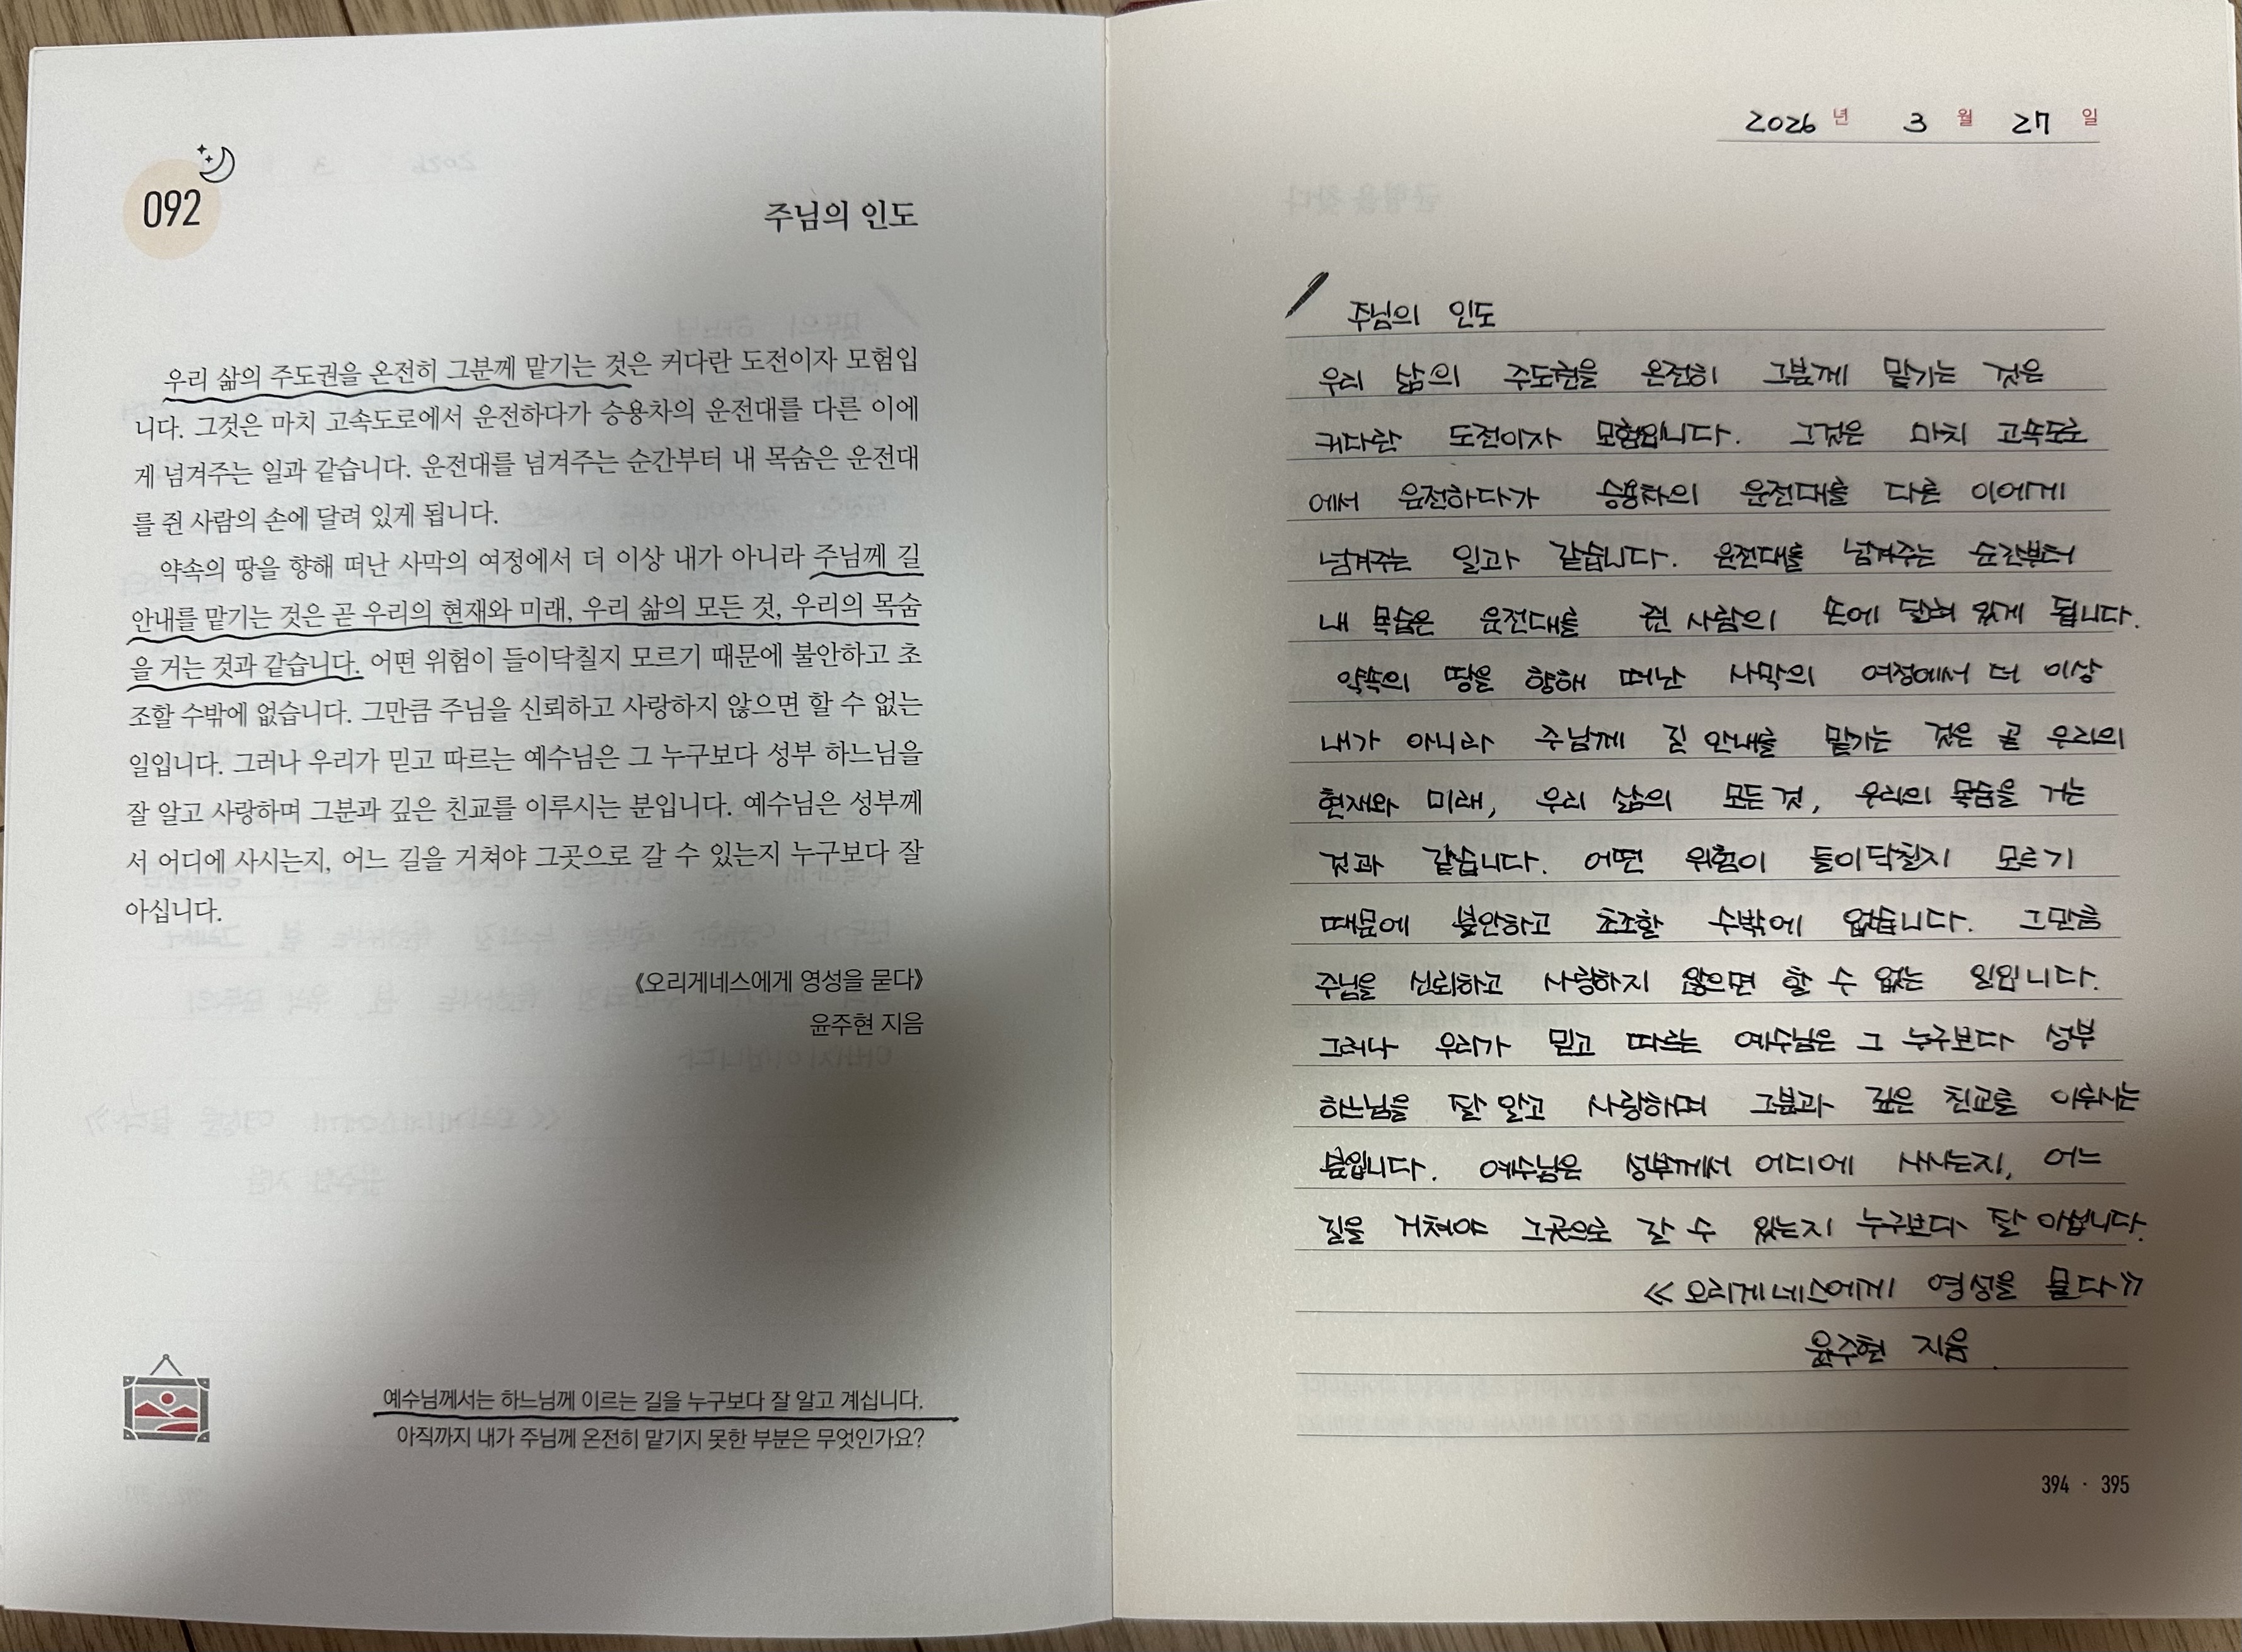 092
주님의 인도
우리 삶의 주도권을 온전히 그분께 맡기는 것은 커다란 도전이자 모험입
니다. 그것은 마치 고속도로에서 운전하다가 승용차의 운전대를 다른 이에
게 넘겨주는 일과 같습니다. 운전대를 넘겨주는 순간부터 내 목숨은 운전대
를 쥔 사람의 손에 달려 있게 됩니다.
약속의 땅을 향해 떠난 사막의 여정에서 더 이상 내가 아니라 주님께 길
안내를 맡기는 것은 곧 우리의 현재와 미래, 우리 삶의 모든 것, 우리의 목숨
을 거는 것과 같습니다. 어떤 위험이 들이닥칠지 모르기 때문에 불안하고 초
조할 수밖에 없습니다. 그만큼 주님을 신뢰하고 사랑하지 않으면 할 수 없는
일입니다. 그러나 우리가 믿고 따르는 예수님은 그 누구보다 성부 하느님을
잘 알고 사랑하며 그분과 깊은 친교를 이루시는 분입니다. 예수님은 성부께
서 어디에 사시는지, 어느 길을 거쳐야 그곳으로 갈 수 있는지 누구보다 잘
아십니다.
《오리게네스에게 영성을 묻다》
윤주현 지음
예수님께서는 하느님께 이르는 길을 누구보다 잘 알고 계십니다.
아직까지 내가 주님께 온전히 맡기지 못한 부분은 무엇인가요?
2026 년 3 월 27 일
주님의 인도
우리 삶의 주도권을 온전히 그분께 맡기는 것은
커다란 도전이자 모험입니다. 그것은 마치 고속도로
에서 운전하다가 승용차의 운전대를 다른 이에게
넘겨주는 일과 같습니다. 운전대를 넘겨주는 순간부터
내 목숨은 운전대를 쥔 사람의 손에 달려 있게 됩니다.
약속의 땅을 향해 떠난 사막의 여정에서 더 이상
내가 아니라 주님께 길 안내를 맡기는 것은 곧 우리의
현재와 미래, 우리 삶의 모든 것, 우리의 목숨을 거는
것과 같습니다. 어떤 위험이 들이닥칠지 모르기
때문에 불안하고 초조할 수밖에 없습니다. 그만큼
주님을 신뢰하고 사랑하지 않으면 할 수 없는 일입니다.
그러나 우리가 믿고 따르는 예수님은 그 누구보다 성부
하느님을 잘 알고 사랑하며 그분과 깊은 친교를 이루시는
분입니다. 예수님은 성부께서 어디에 사시는지, 어느
길을 거쳐야 그곳으로 갈 수 있는지 누구보다 잘 아십니다.
《오리게네스에게 영성을 묻다》
윤주현 지음
394 · 395